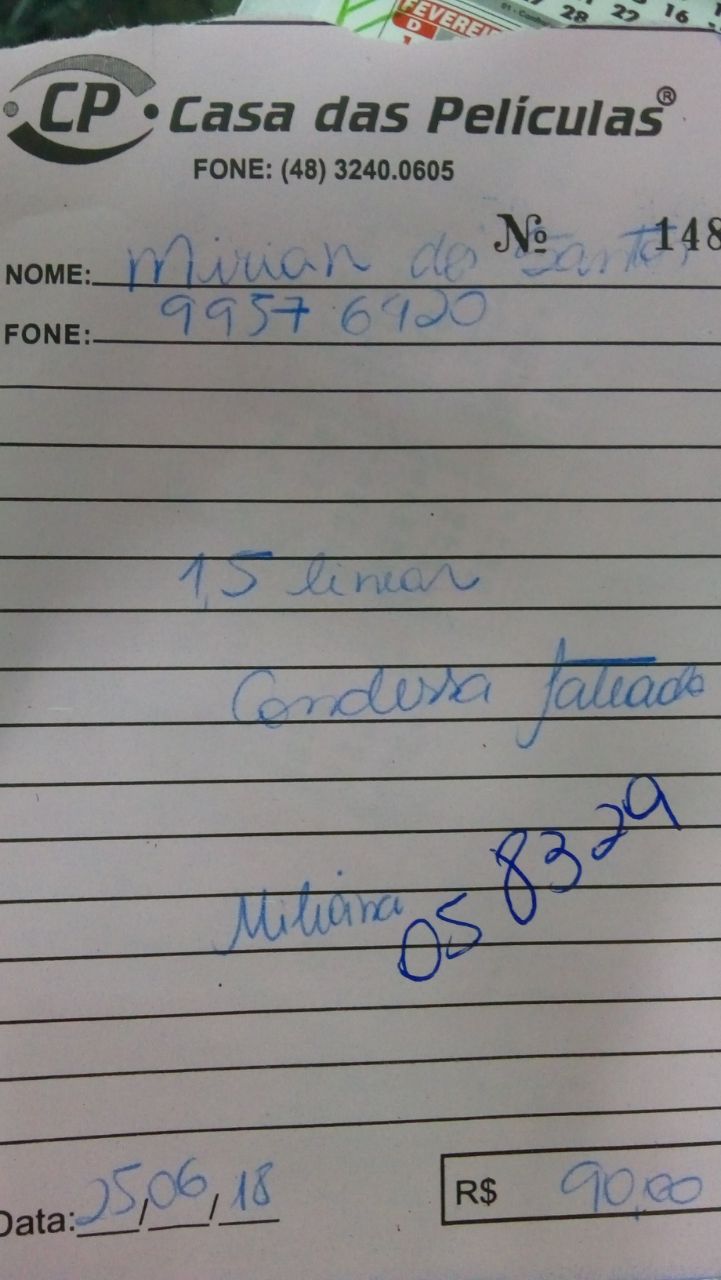 FEVEREI
D
1
28 29 16
CP Casa das Películas®
FONE: (48) 3240.0605
Nº 148
NOME: Mirian dos Santos
FONE: 9957 6920
1,5 linear
Condessa
05 8329
Data: 25/06/18
R$ 90,00